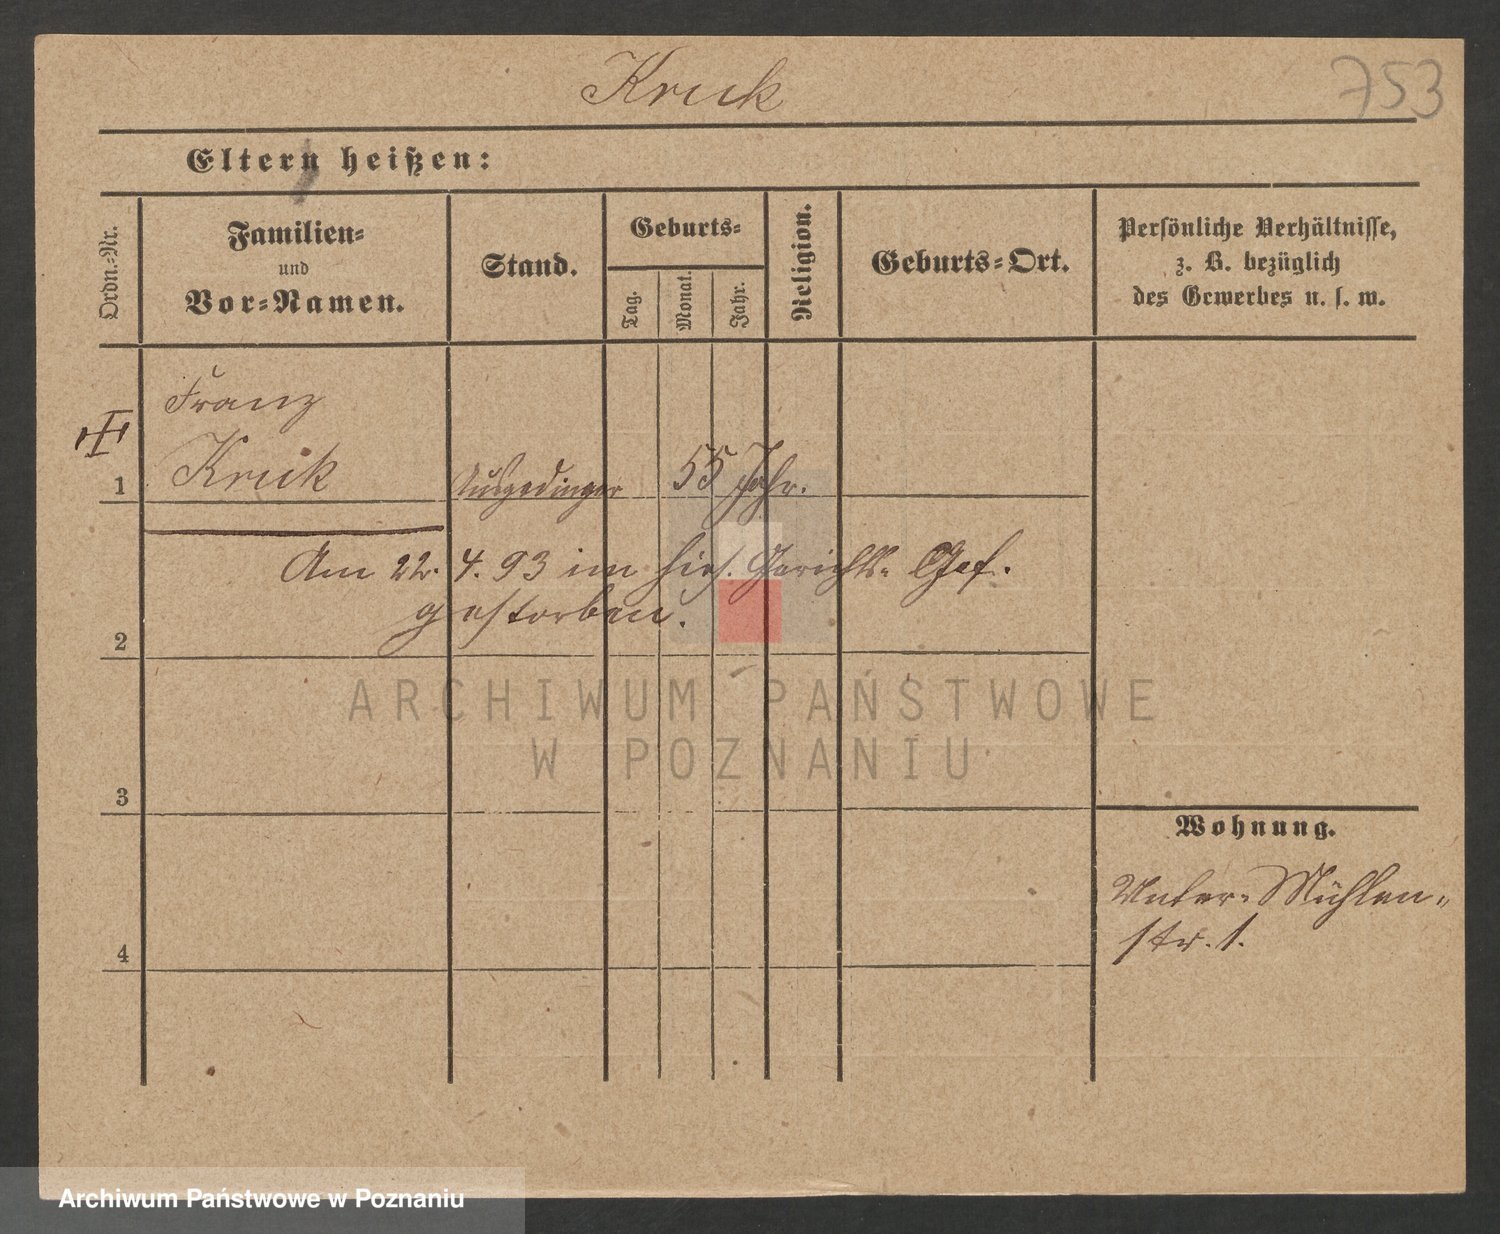 Kruk
753
Eltern heißen:
Ordn.-Nr.
Familien-
und
Vor-Namen.
Stand.
Geburts-
Tag.
Monat.
Jahr.
Religion.
Geburts-Ort.
Persönliche Verhältnisse,
z. B. bezüglich
des Gewerbes u. s. w.
Franz
1 Kruk Ausgedinger 55 Jahr.
Am 22. 4. 93 im hies. Gerichts-Gef.
gestorben.
2
ARCHIWUM PAŃSTWOWE
W POZNANIU
3
Wohnung.
Unter-Mühlen-
str. 1.
4
Archiwum Państwowe w Poznaniu